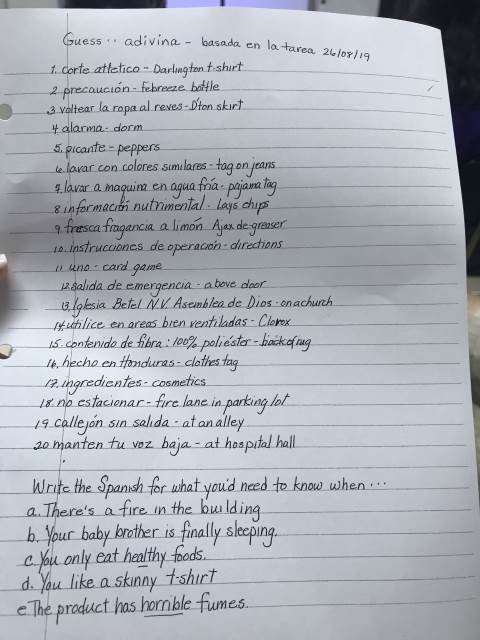 Guess .. adivina - basada en la tarea 26/08/19
1. corte atletico - Darlington t-shirt
2 precaución - Febreeze bottle
3 voltear la ropa al reves - D'ton skirt
4 alarma - dorm
5. picante - peppers
6. lavar con colores similares - tag on jeans
7. lavar a maquina en agua fría - pajama tag
8 información nutrimental - Lays chips
9 fresca fragancia a limón Ajax de-greaser
10. Instrucciones de operación - directions
11 uno - card game
12. salida de emergencia - above door
13. Iglesia Betel N.V. Asemblea de Dios - on a church
14. utilice en areas bien ventiladas - Clorox
15. contenido de fibra : 100% poliéster - back of rug
16. hecho en Honduras - clothes tag
17. ingredientes - cosmetics
18. no estacionar - fire lane in parking lot
19. callejón sin salida - at an alley
20 manten tu voz baja - at hospital hall
Write the Spanish for what you'd need to know when ...
a. There's a fire in the building
b. Your baby brother is finally sleeping.
c. You only eat healthy foods.
d. You like a skinny t-shirt
e The product has horrible fumes.